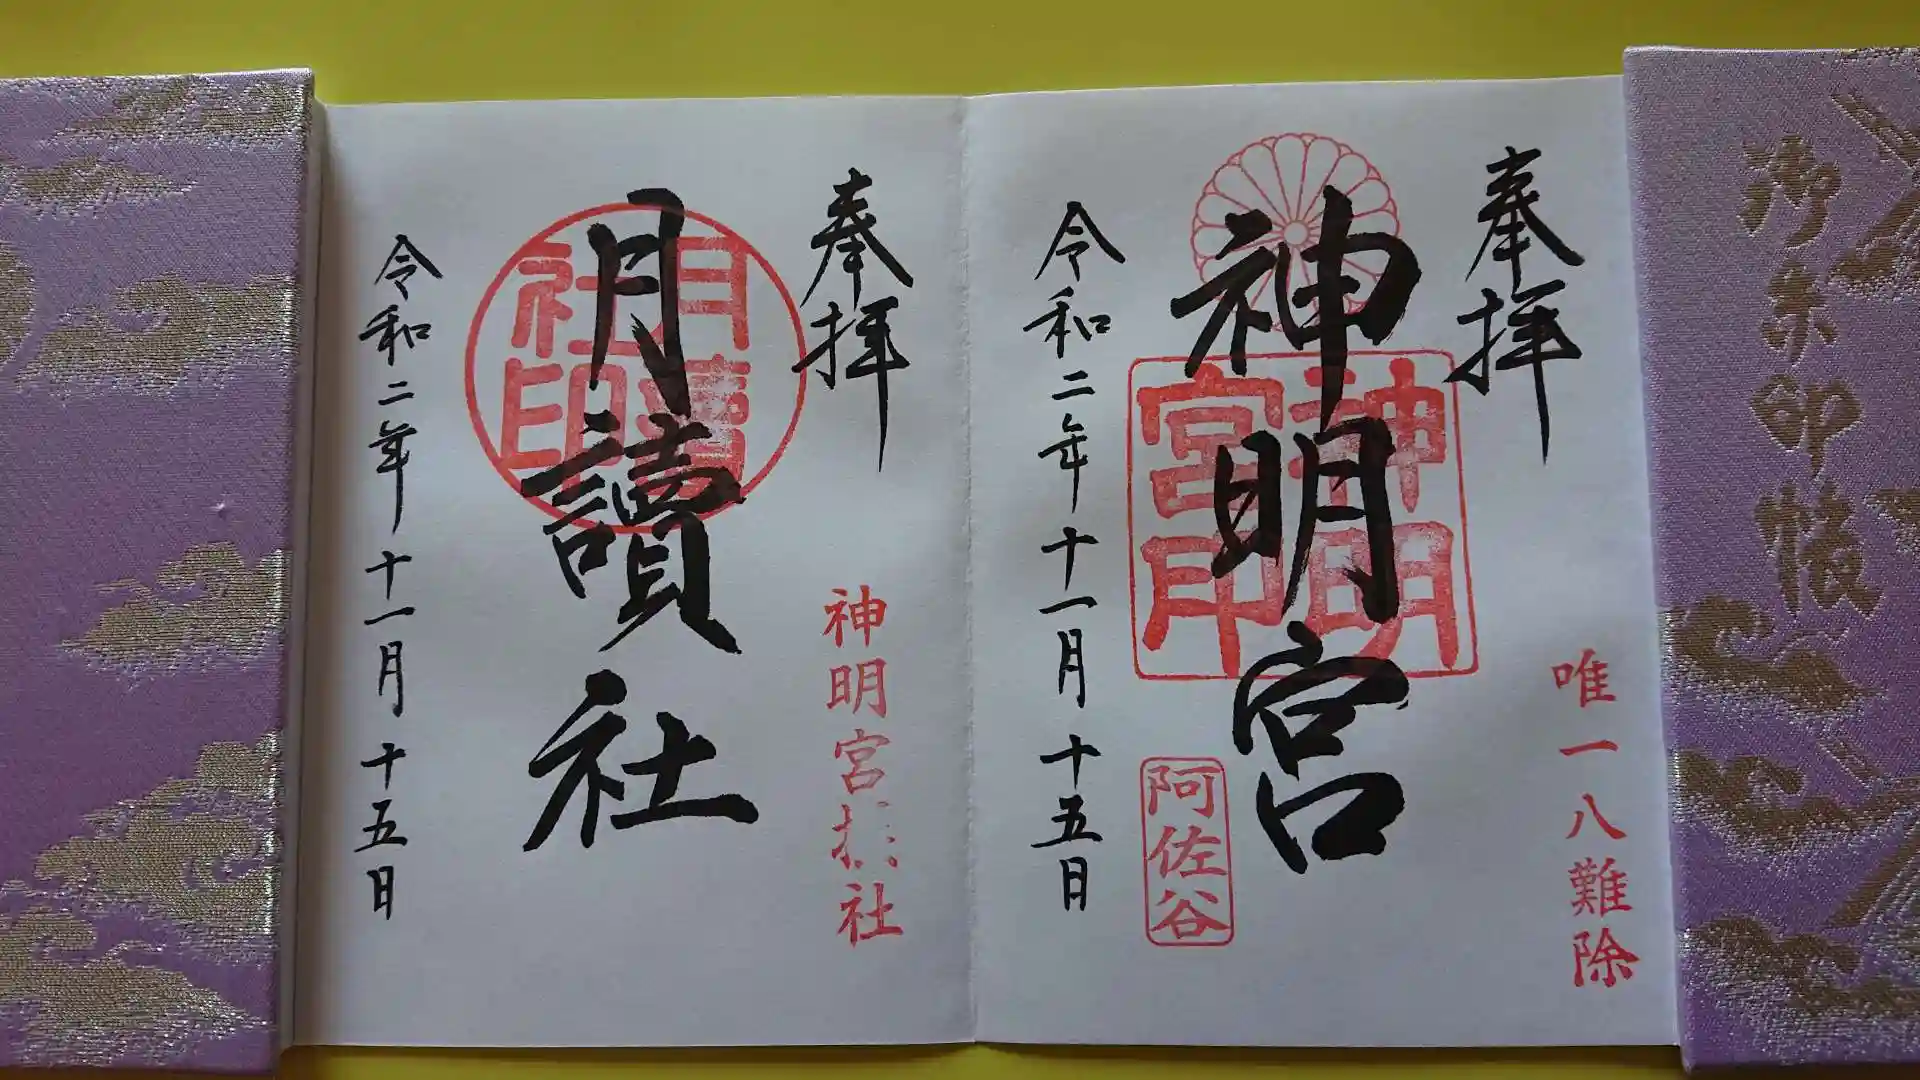 御朱印帳
奉拝
唯一八難除
神明宮
神明宮印
阿佐谷
令和二年十一月十五日
奉拝
神明宮 社
月讀社
月讀社印
令和二年十一月十五日